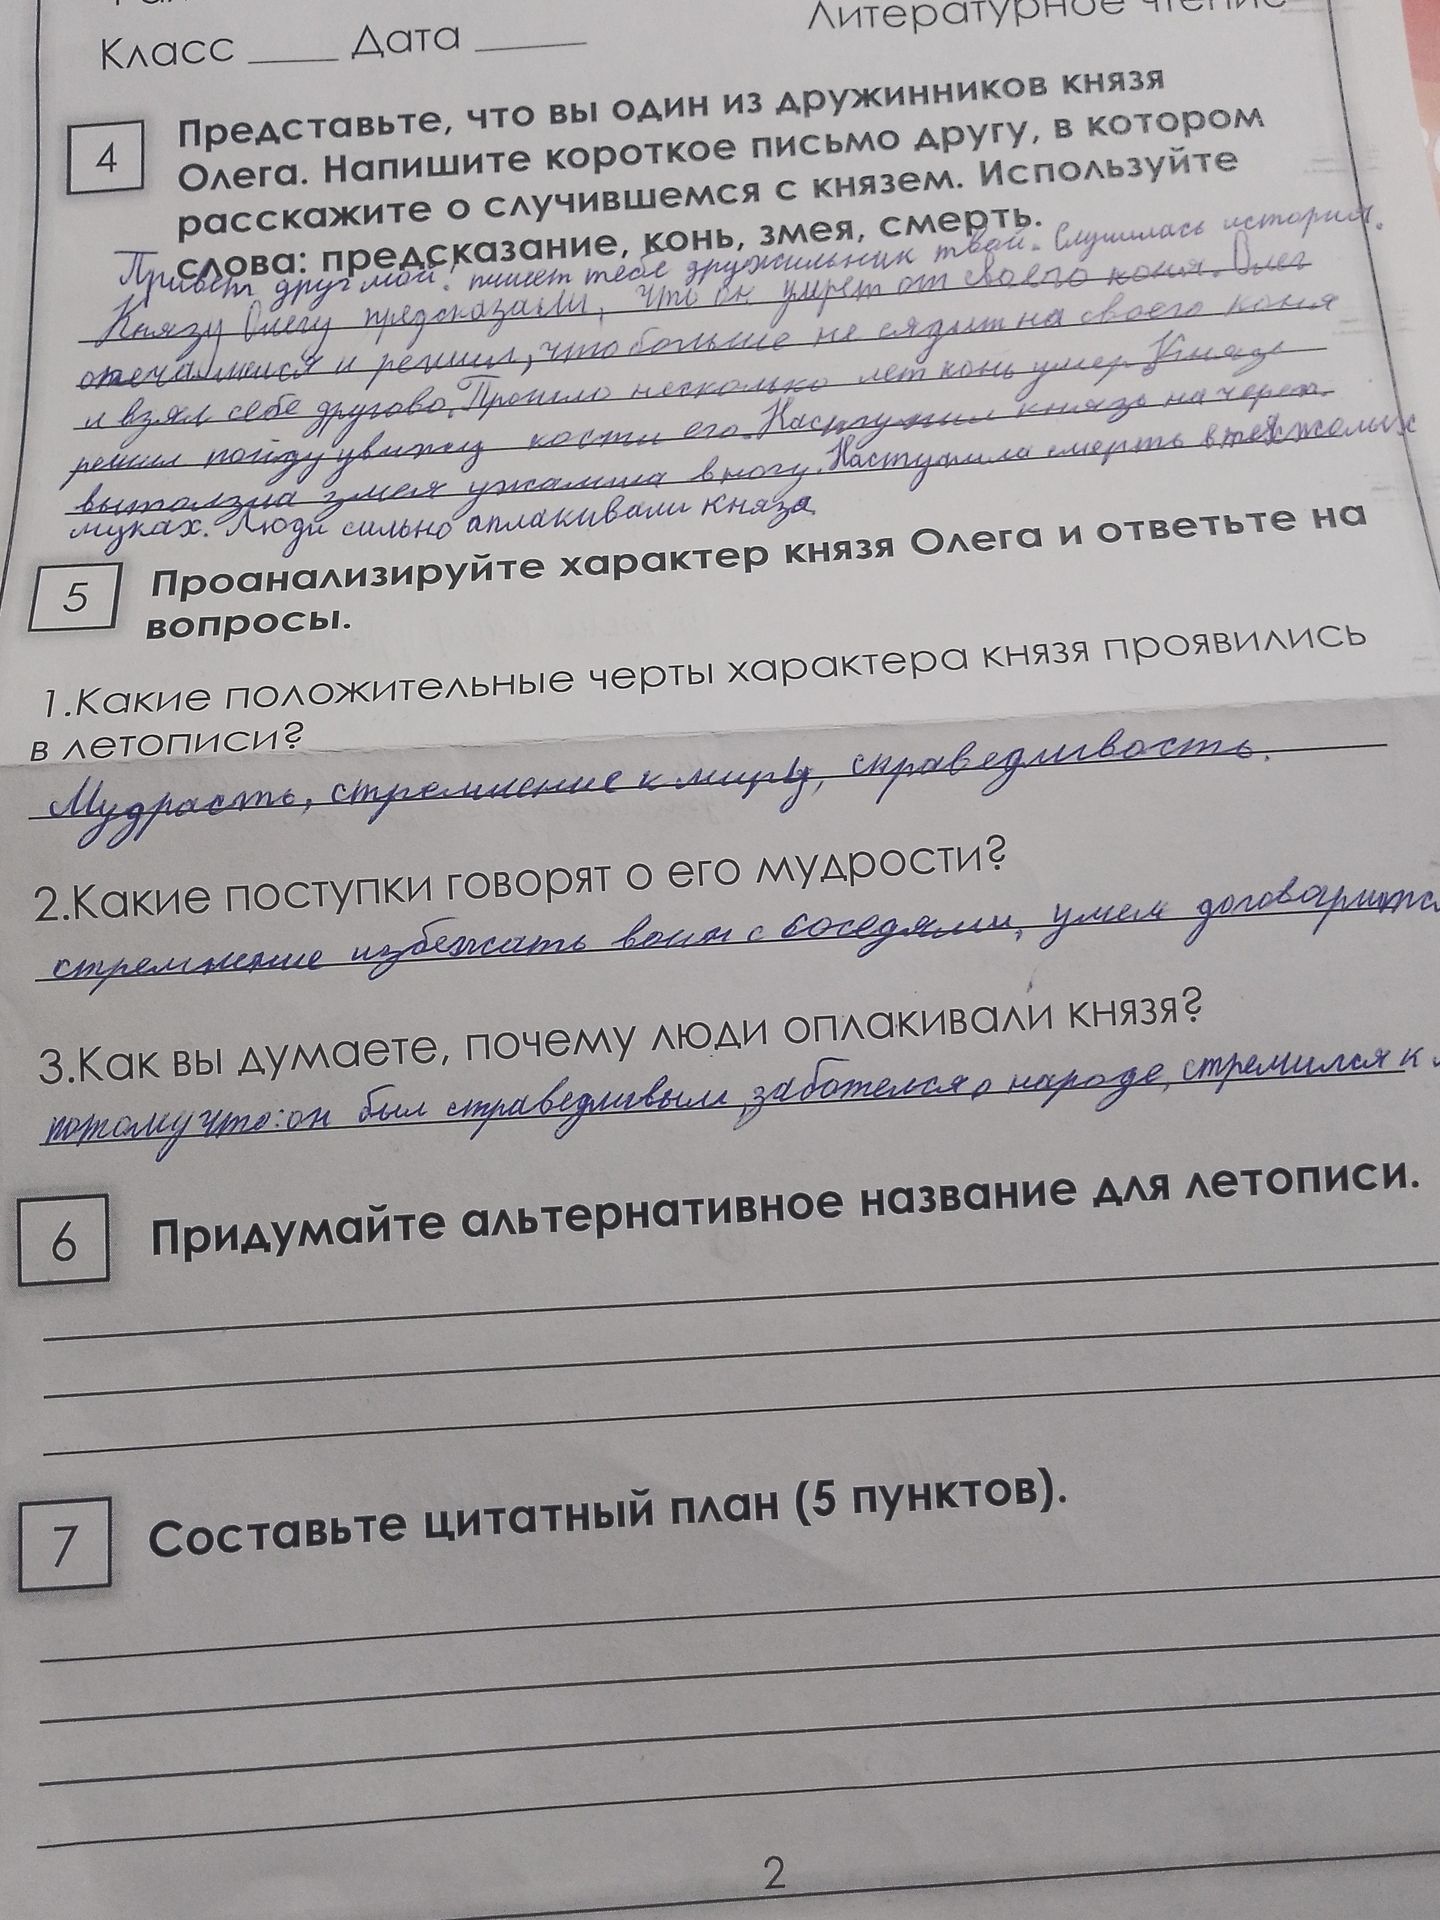 Класс ____ Дата ____
Литературное чтение
4
Представьте, что вы один из дружинников князя
Олега. Напишите короткое письмо другу, в котором
расскажите о случившемся с князем. Используйте
слова: предсказание, конь, змея, смерть.
Привет друг мой! пишет тебе дружильник твой. Слушилась история.
Князу Олегу предсказали, что он умрет от своего коня. Олег
и решил, что больше не сядит на своего коня
и взял себе другово. Прошло несколько лет конь умер. Князь
решил пойду увижу кости его. Наступил князь на череп.
выползла змея ужалила в ногу. Наступила смерть в тяжолых
муках. Люди сильно аплакивали князя
5
Проанализируйте характер князя Олега и ответьте на
вопросы.
1.Какие положительные черты характера князя проявились
в летописи?
Мудрасть, стремление к миру, справедливость.
2.Какие поступки говорят о его мудрости?
стремление избежать воин с соседями, умел
3.Как вы думаете, почему люди оплакивали князя?
потому что: он был справедливым, заботелся о народе, стремился к
6
Придумайте альтернативное название для летописи.
7
Составьте цитатный план (5 пунктов).
2